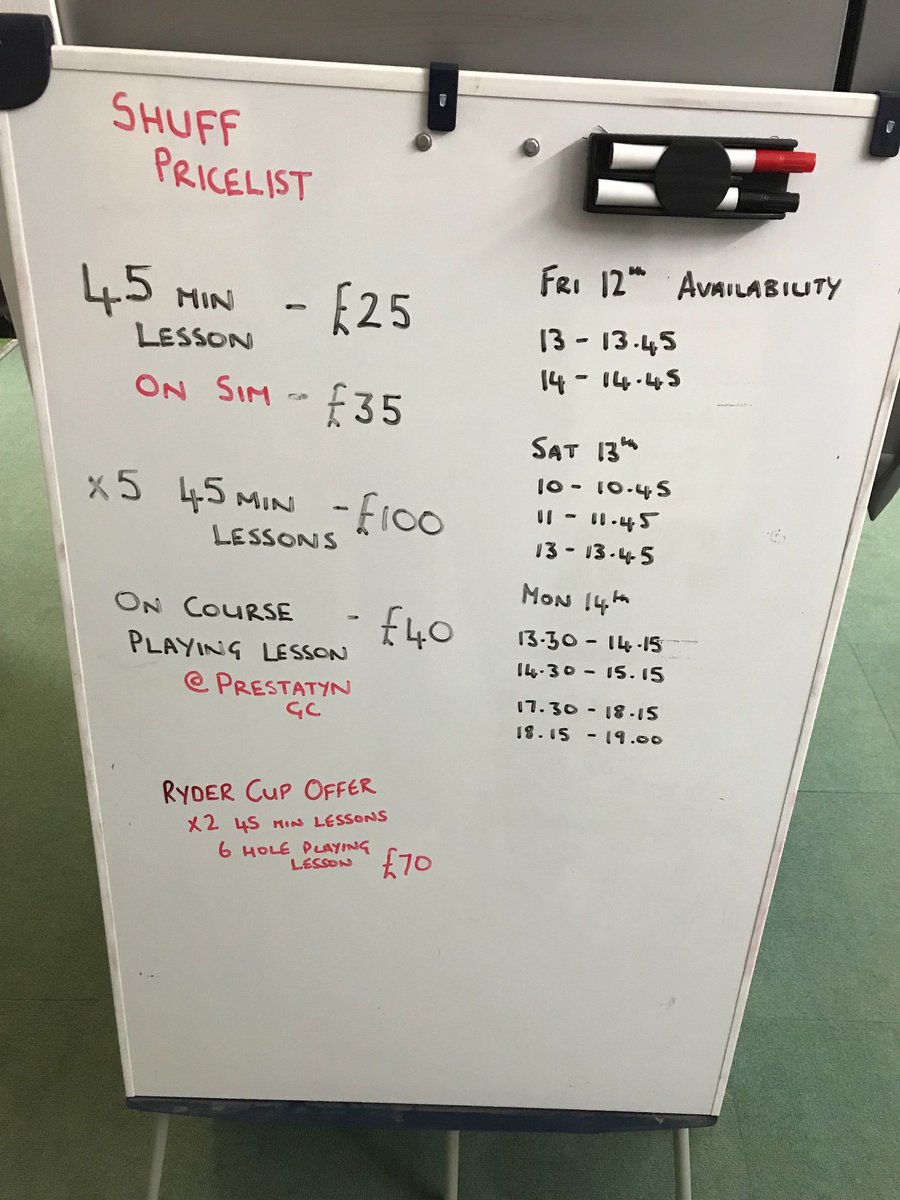 SHUFF
PRICELIST
45 MIN
LESSON - £25
ON SIM - £35
x5 45 MIN
LESSONS - £100
ON COURSE
PLAYING LESSON - £40
@ PRESTATYN
GC
RYDER CUP OFFER
x2 45 MIN LESSONS
6 HOLE PLAYING
LESSON £70
FRI 12th AVAILABILITY
13 - 13.45
14 - 14.45
SAT 13th
10 - 10.45
11 - 11.45
13 - 13.45
MON 14th
13.30 - 14.15
14.30 - 15.15
17.30 - 18.15
18.15 - 19.00